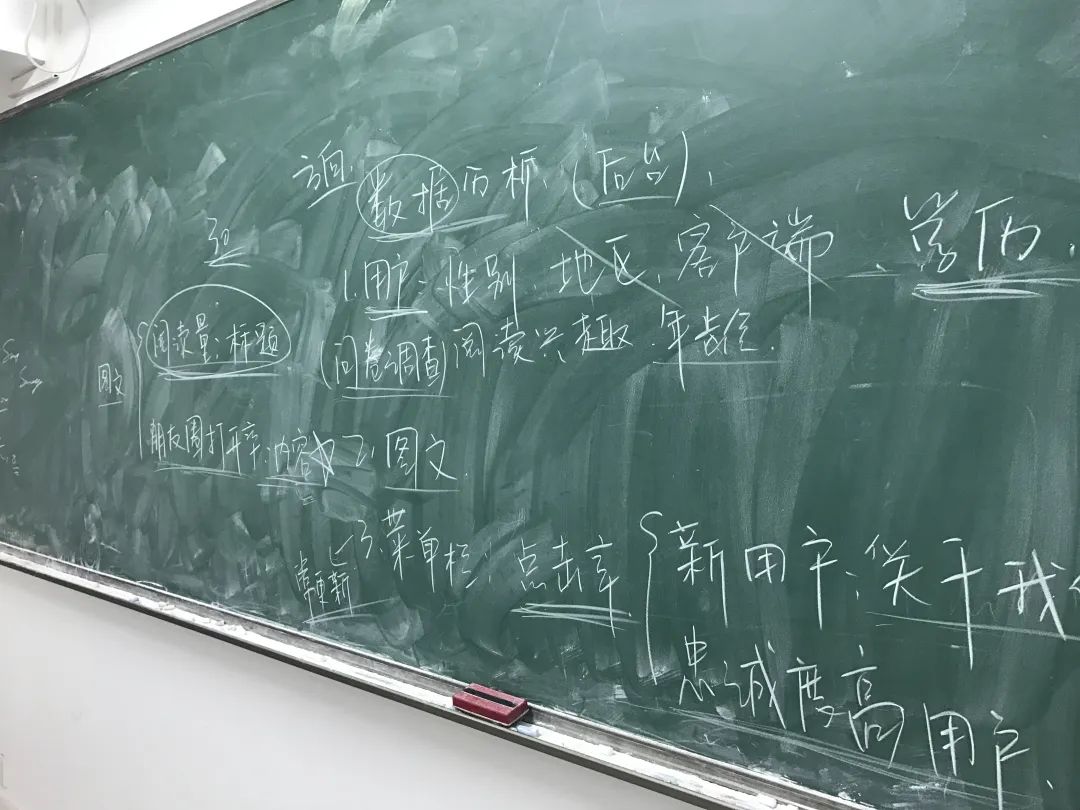 数据分析、(后台)、
1.用户：性别、地区、客户端、学历、
(问卷调查)阅读兴趣、年龄
图文
阅读量：标题
朋友圈打开率：内容
2.图文.
3.菜单栏：点击率
常更新
新用户：关于我
忠诚度高用户.